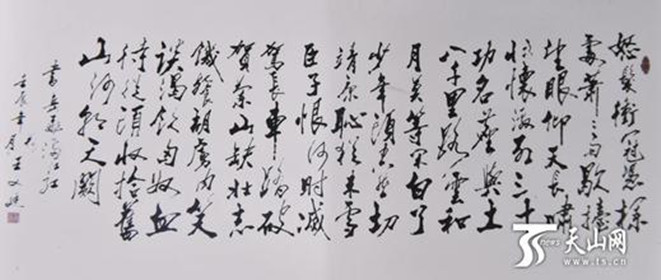 怒髮衝冠憑欄
處蕭蕭雨歇抬
望眼仰天長嘯
壯懷激烈三十
功名塵與土
八千里路雲和
月莫等闲白了
少年頭空悲切
靖康恥猶未雪
臣子恨何時滅
駕長車踏破
賀蘭山缺壯志
饑餐胡虜肉笑
談渴飲匈奴血
待從頭收拾舊
山河朝天闕
書岳飛滿江紅
壬辰年 月王文
TSNEWS 天山网
www.ts.cn